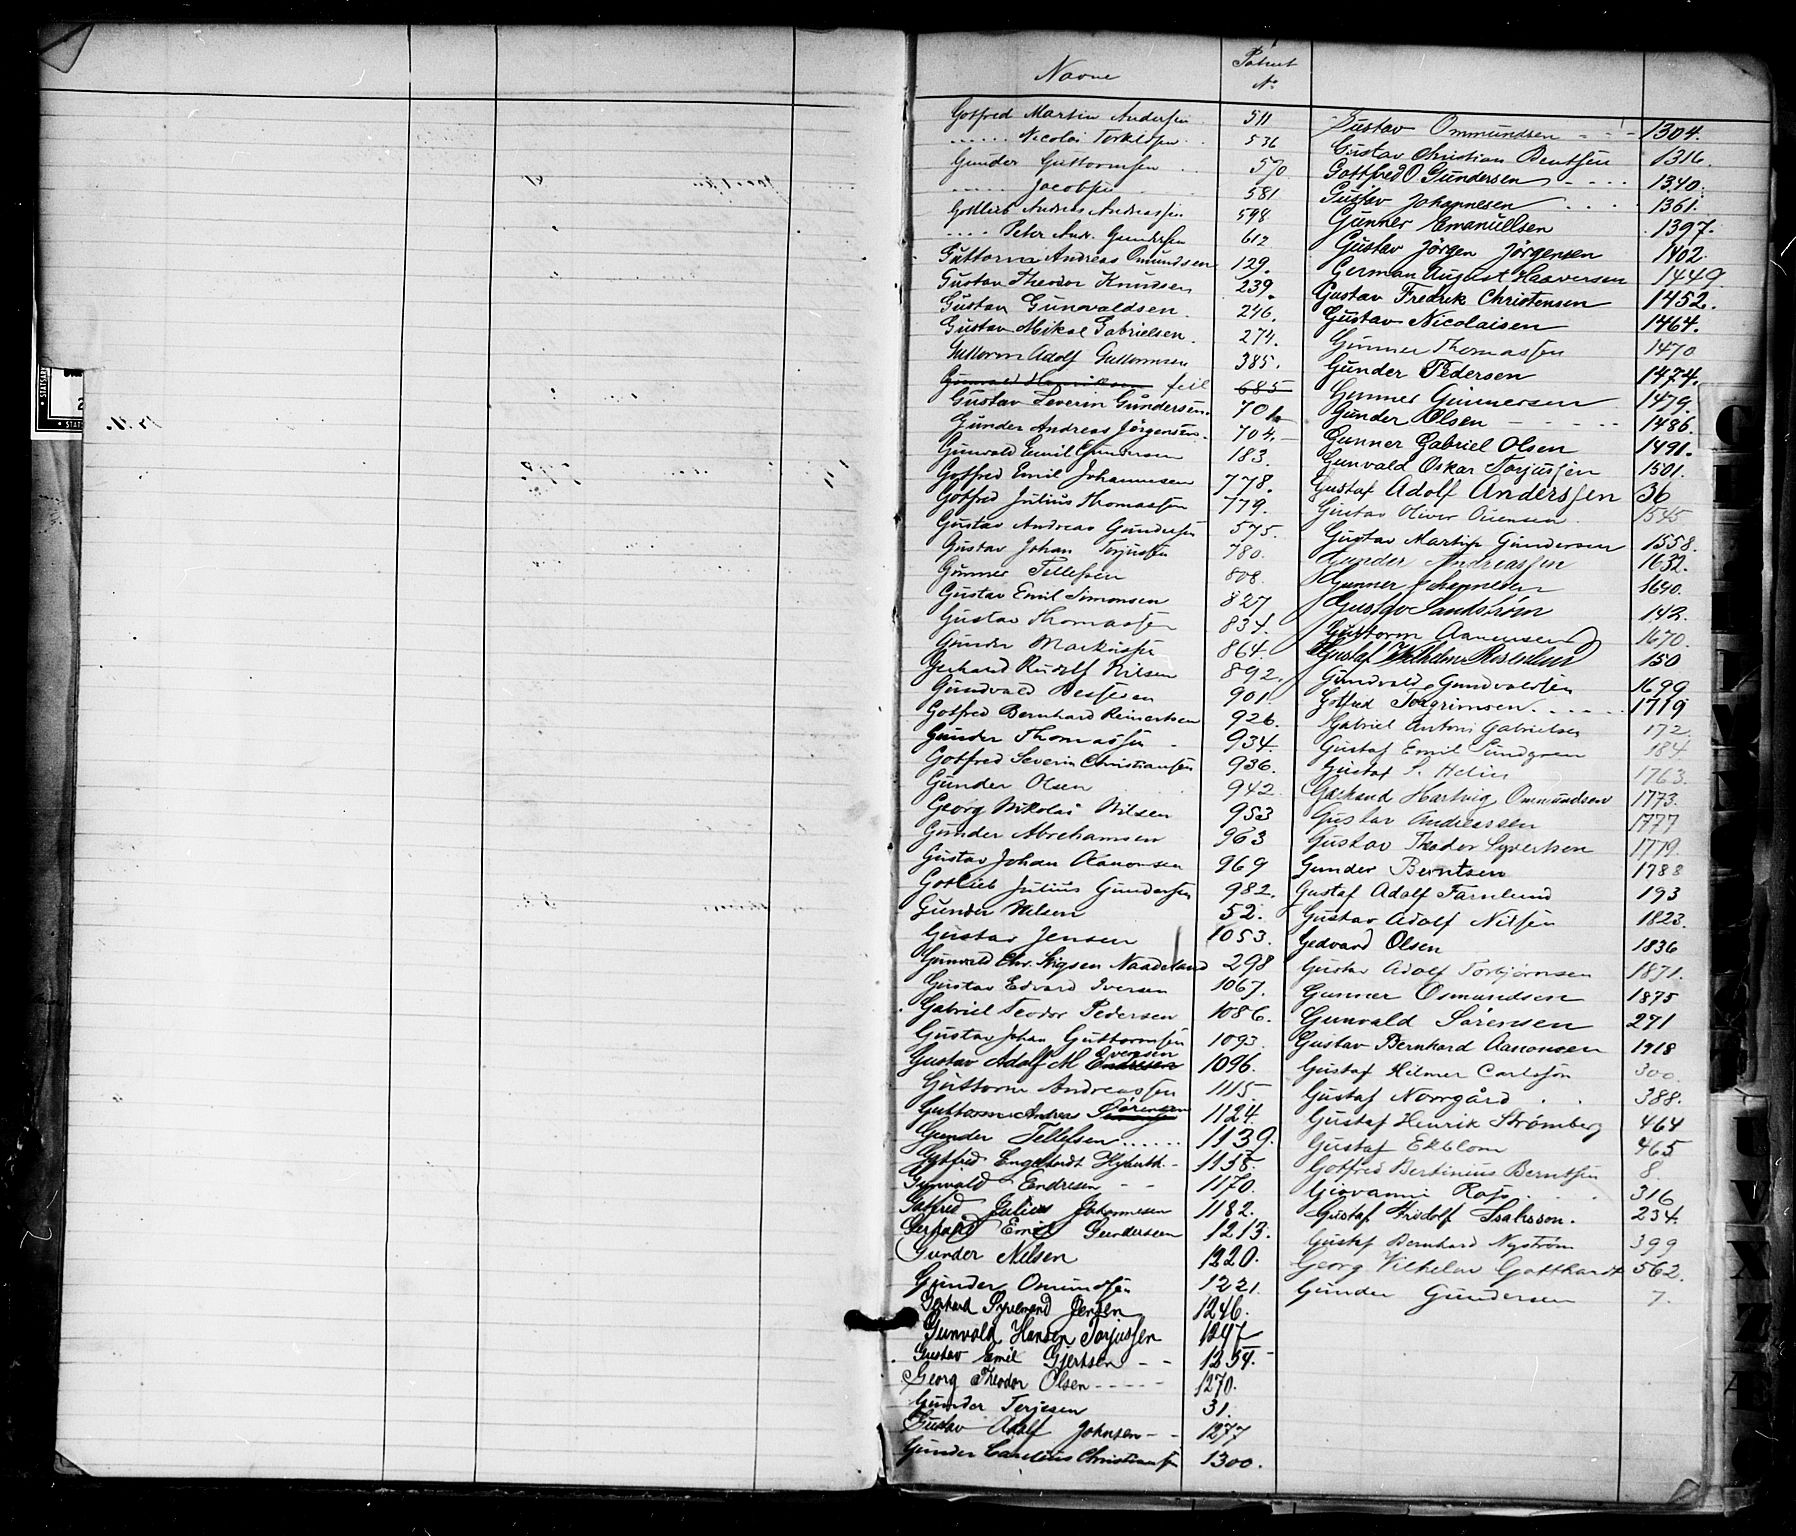 Navne
Patent
No
Gotfred Martin Andersen 511
..... Nicolai Torkildsen 536
Gunder Guttormsen 570
..... Jacobsen 581
Gotlieb Andreas Andreassen 598
.... Peter Andr. Gundersen 612
Guttorm Andreas Omundsen 129.
Gustav Theodor Knudsen 239.
Gustav Gunvaldsen 246.
Gustav Mikal Gabrielsen. 274.
Guttorm Adolf Guttormsen 385.
Gunvald Henriksen feil 685
Gustav Severin Gundersen. 701.
Gunder Andreas Jörgensen. 704.
Gunvald Emil Gundersen 183.
Gotfred Emil Johannesen 778.
Gotfred Julius Thomassen 779.
Gustav Andreas Gundersen 575.
Gustav Johan Terjussen 780.
Gunner Tellefsen 808.
Gustav Emil Simonsen 827
Gustav Thomassen 834.
Gunder Markussen 864.
Gerhard Rudolf Nilsen 892.
Gundvald 901
Gotfred Bernhard Reinertsen 926.
Gunder Thomassen 934.
Gotfred Severin Christiansen 936.
Gunder Olsen 942
Georg Nikolai Nilsen 953
Gunder Abrehamsen 963
Gustav Johan Aanonsen 969
Gotlieb Julius Gundersen 982.
Gunder Nilsen 52.
Gustav Jensen 1053.
Gunvald Chr. Stigsen Naadeland 298
Gustav Edvard Iversen 1067.
Gabriel Teodor Pedersen 1086.
Gustav Johan Guttormsen 1093.
Gustav Adolf M Evensen 1096.
Guttorm Andreassen 1115.
Guttorm Andreas Sörensen 1124.
Gunder Tellefsen ...... 1139.
Gotfred Engelhardt 1158.
Gunvald Endresen - - 1170.
Gotfred Julius Johannesen 1182.
Gerhard Emil Gundersen 1213.
Gunder Nilsen 1220.
Gunder Omundsen 1221.
Gerhard Jensen 1246.
Gunvald Hansen Torjussen 1247
Gustav Emil Gjertsen - - 1254.
Georg Theodor Olsen - - - - - 1270.
Gunder Terjesen 31.
Gustav Adolf Johnsen - - 1277
Gunder Carelius Christiansen 1300.
Gustav Ommundsen - - - 1304.
Gustav Christian Bentsen 1316.
Gottfred O. Gundersen - - - - 1340.
Gustav Johannesen . . . . 1361.
Gunner Emanuelsen 1397.
Gustav Jörgen Jörgensen 1402.
German August Haaversen 1449.
Gustav Fredrik Christensen 1452.
Gustav Nicolaisen 1464.
Gunner Thomassen 1470
Gunder Pedersen 1474.
Gunner Gunnersen 1479.
Gunder Olsen - - - - - 1486.
Gunner Gabriel Olsen 1491.
Gunvald Oskar Torjussen 1501.
Gustaf Adolf Anderssen 36
Gustav Oliver 1545
Gustav Martin Gundersen 1558.
Gunder Andreassen 1632.
Gunner Johannesen 1640.
Gustav Sandström 142.
Guttorm Aanensen 1670.
Gustaf Wilhelm 150
Gundvald Gundvaldsen 1699
Gotfred Torgrimsen . . . . . 1719
Gabriel Anton Gabrielsen 172.
Gustaf Emil Lundgren 184
Gustaf S. Helin 1763.
Hartvig Ommundsen 1773.
Gustav Andreassen 1777
Gustav Theodor Syvertsen 1779.
Gunder Berntsen 1788
Gustaf Adolf Farnlund 193
Gustav Adolf Nilsen 1823.
Gedvard Olsen 1836
Gustav Adolf Torbjörnsen 1871.
Gunner Osmundsen 1875
Gunvald Sörensen 271
Gustav Bernhard Aanonsen 1918
Gustaf Hilmer Carlsson 300.
Gustaf Norrgård . . 388.
Gustaf Henrik Strömberg 464
Gustaf Ekblom 465
Gotfred Bertinius Berntsen 8.
Giovanni . . . 316
Gustaf Fridolf Isaksson. 234.
Gustaf Bernhard Nyström 399
Georg Vilhelm Gotthardt 562.
Gunder Gundersen 7.